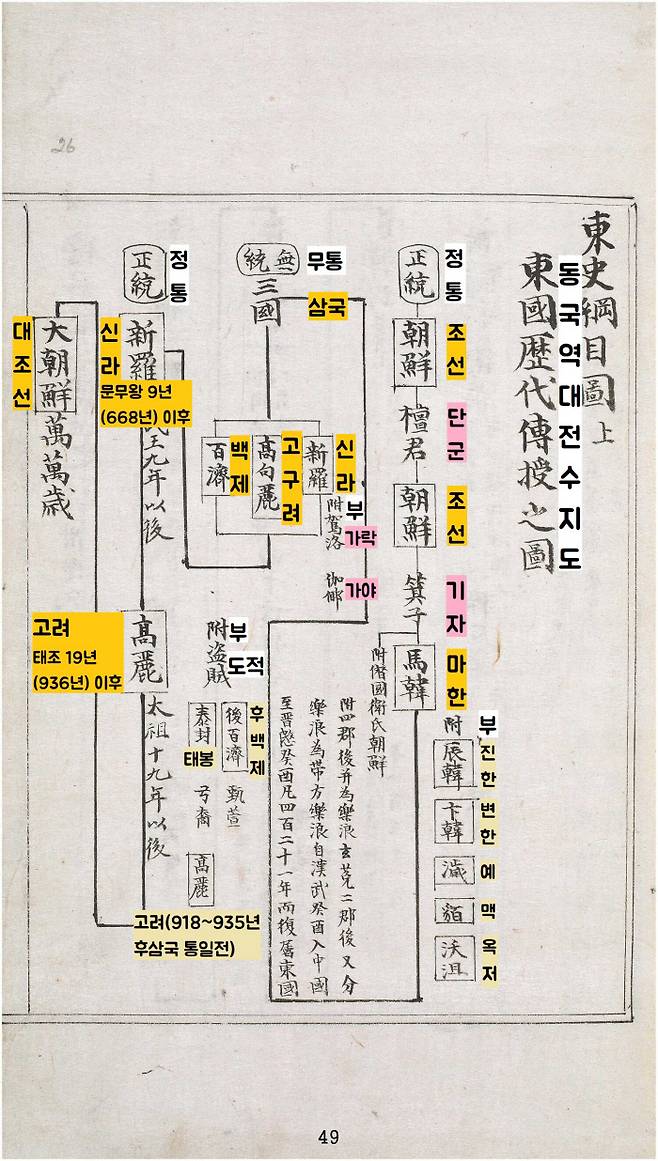 26
東史綱目圖上
東國歷代傳授之圖
동국역대전수지도
正統
정통
朝鮮
조선
檀君
단군
朝鮮
조선
箕子
기자
馬韓
마한
附
부
辰韓
진한
卞韓
변한
濊
예
貊
맥
沃沮
옥저
附僭國衛氏朝鮮
附四郡後并為樂浪玄菟二郡後又分
樂浪為帶方樂浪自漢武癸酉入中國
至晋愍癸酉凡四百二十一年而復屬東國
無統
무통
三國
삼국
新羅
신라
附駕洛
부
가락
伽倻
가야
高句麗
고구려
百濟
백제
附盜賊
부
도적
後百濟
후백제
甄萱
泰封
태봉
弓裔
高麗
고려(918~935년
후삼국 통일전)
正統
정통
新羅
신라
문무왕 9년
(668년) 이후
王九年以後
高麗
고려
태조 19년
(936년) 이후
太祖十九年以後
大朝鮮萬萬歲
대조선
49